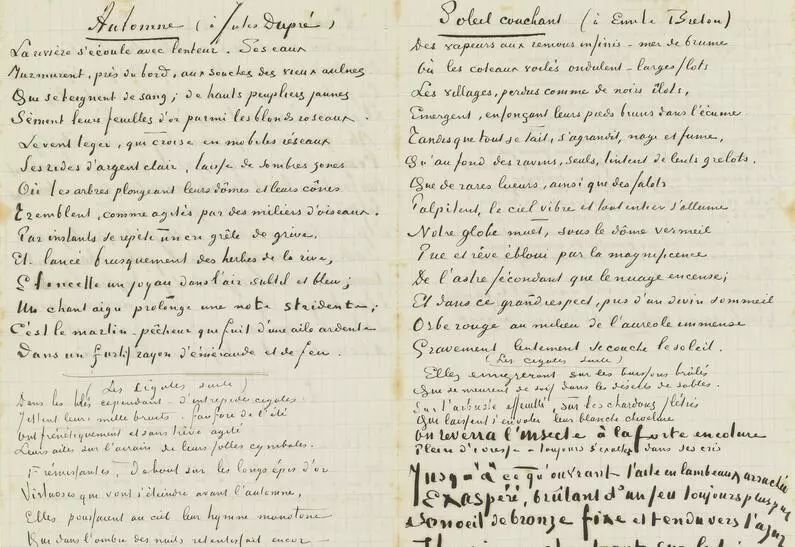 Automne (à Jules Dupré)
La rivière s'écoule avec lenteur. Ses eaux
Murmurent, près du bord, aux souches des vieux aulnes
Qui se teignent de sang; de hauts peupliers jaunes
Sèment leurs feuilles d'or parmi les blonds roseaux.
Le vent leger, qui croise en mobiles réseaux
Ses rides d'argent clair, laisse de sombres zones
Où les arbres plongeant leurs dômes et leurs cônes
Tremblent, comme agités par des milliers d'oiseaux.
Par instants se répète un cri grêle de grive,
Et lancé brusquement des herbes de la rive,
Etincelle un joyau dans l'air subtil et bleu;
Un chant aigu prolonge une note stridente;
C'est le martin-pêcheur qui fuit d'une aile ardente
Dans un furtif rayon d'émeraude et de feu.
(Les Cigales suite)
Dans les blés cependant d'intrépides cigales
Jettent leurs mille bruits, fanfare de l'été
Ont frénétiquement et sans trêve agité
Leurs ailes sur l'airain de leurs folles cymbales.
Frémissantes, debout sur les longs épis d'or
Virtuoses qui vont s'éteindre avant l'automne,
Elles poussaient au ciel leur hymne monotone
Que dans l'ombre des nuits retentisfait encor
Soleil couchant (à Emile Breton)
Des vapeurs aux remous infinis - mer de brume
Où les coteaux voilés ondulent - larges flots
Les villages, perdus comme de noirs îlots,
Emergent, enfonçant leurs pieds bruns dans l'écume.
Tandis que tout se tait, s'agrandit, nage et fume,
Qu'au fond des ravins, seuls, tintent de lents grelots.
Que de rares lueurs, ainsi que des falots
Palpitent, le ciel vibre et tout entier s'allume
Notre globe muet, sous le dôme vermeil
Fue et rêve ébloui par la magnificence
De l'astre fécondant que le nuage encense;
Et dans ce grand respect, pris d'un divin sommeil
Orbe rouge au milieu de l'aureole immense
Gravement lentement se couche le soleil.
(Les cigales suite)
Elles émigreront sur les buissons brûlés
Qui se meurent de soif dans les déserts de sables.
Sur l'arbuste effeuillé, sur les chardons flétris
Qui laissent s'envoler leur blanche chevelure
On reverra l'insecte à la forte encolure
Plein d'ivresse - toujours s'exalter dans ses cris
Jusqu'à ce qu'ouvrant l'aile en lambeaux arrachée
Exaspéré, brûlant d'un feu toujours plus pur
Son oeil de bronze fixe et tendu vers l'azur